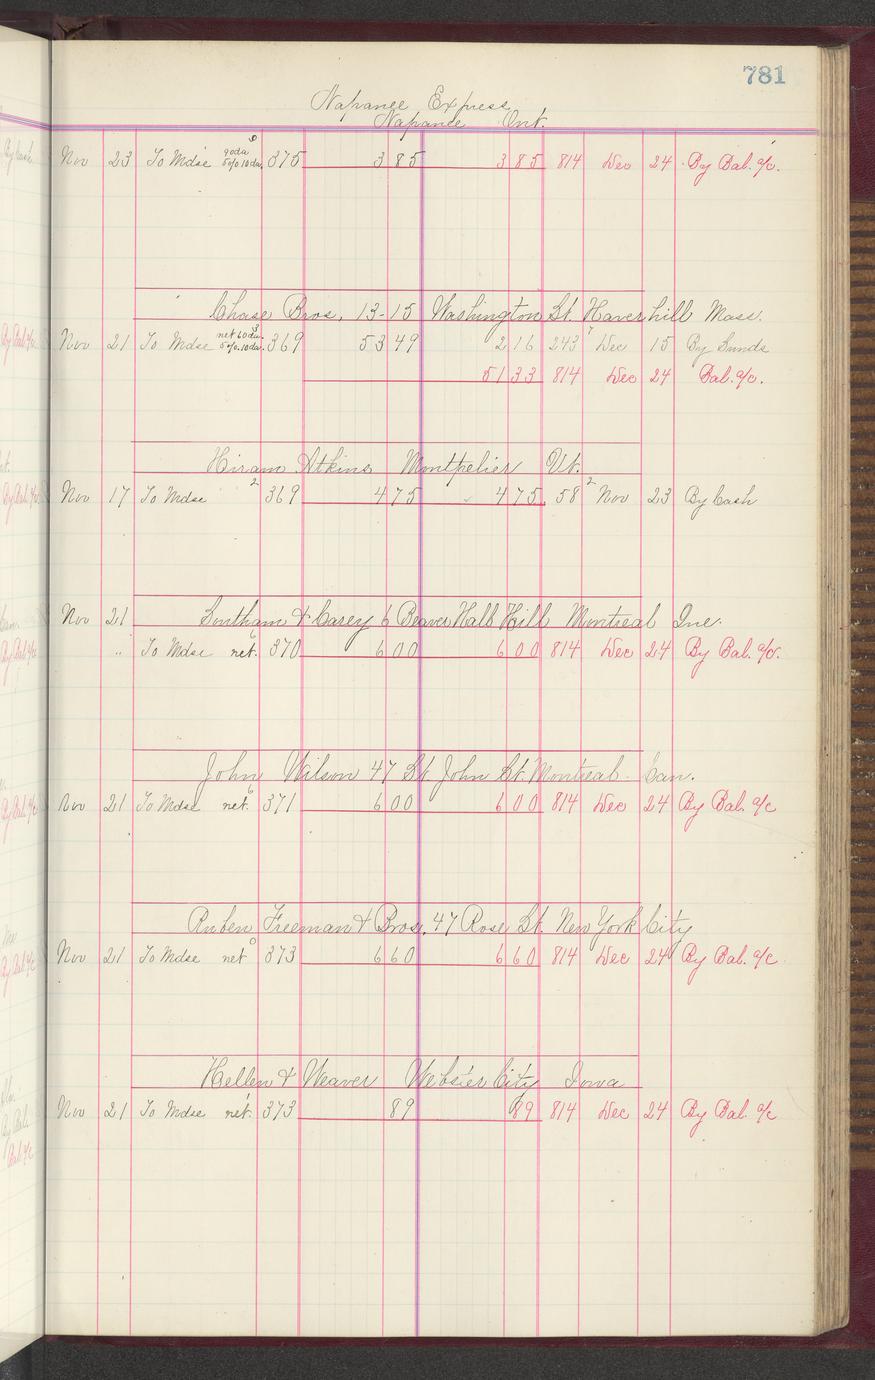 781
Napanee Express
Napanee Ont.
Nov 23 To Mdse 90da 5% 10da. 375 3 85 3 85 814 Dec 24 By Bal. a/c.
Chase Bros. 13-15 Washington St. Haverhill Mass.
Nov 21 To Mdse net 60da. 5% 10da. 369 53 49 2 16 243 Dec 15 By Sunds
51 33 814 Dec 24 Bal. a/c.
Hiram Atkins Montpelier Vt.
Nov 17 To Mdse 2 369 4 75 4 75 58 2 Nov 23 By Cash
Nov 21 Southam & Carey 6 Beaver Hall Hill Montreal Que.
" To Mdse net. 6 370 6 00 6 00 814 Dec 24 By Bal. a/c.
John Wilson 47 St John St. Montreal Can.
Nov 21 To Mdse net. 6 371 6 00 6 00 814 Dec 24 By Bal. a/c
Ruben Freeman & Bros. 47 Rose St. New York City
Nov 21 To Mdse net 373 6 60 6 60 814 Dec 24 By Bal. a/c
Hellen & Weaver Webster City Iowa
Nov 21 To Mdse net. 373 89 89 814 Dec 24 By Bal. a/c